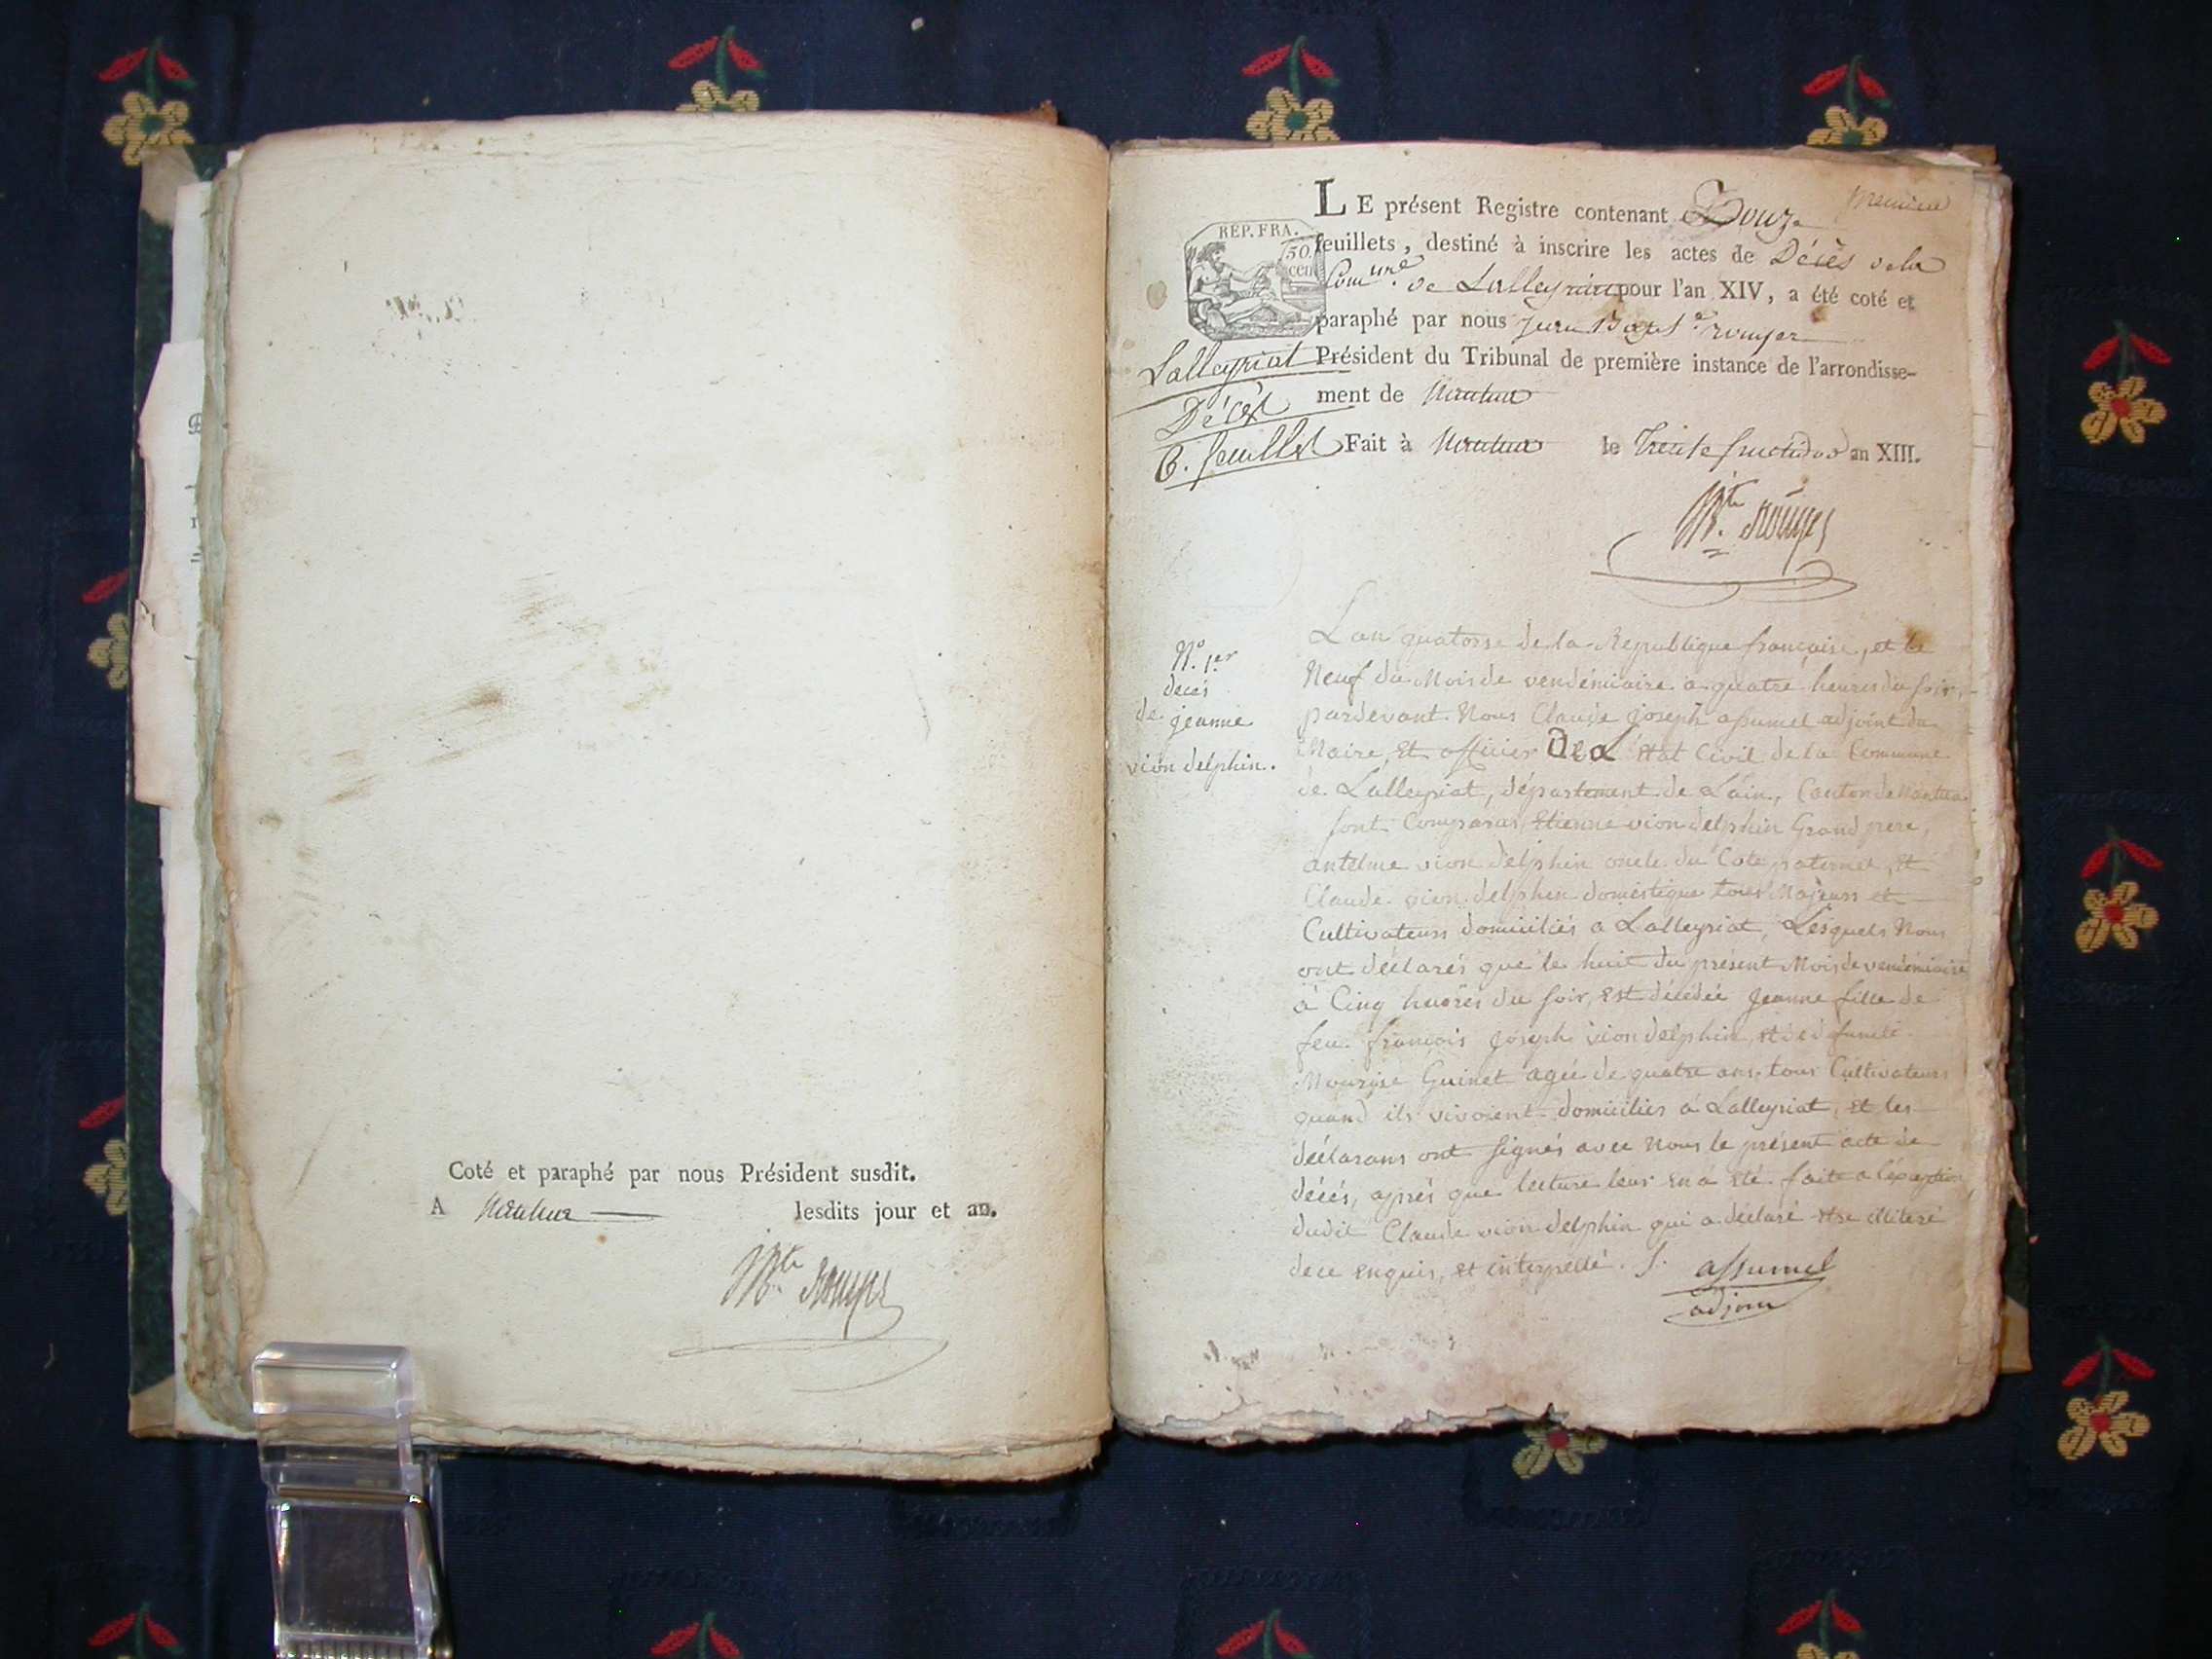 Coté et paraphé par nous Président susdit.
A Nantua lesdits jour et an.
Bte Rouyer
premiere
LE présent Registre contenant Douze
feuillets, destiné à inscrire les actes de Décès de la
Comune de Lalleyriat pour l'an XIV, a été coté et
paraphé par nous Jean Bapte Rouyer
Président du Tribunal de première instance de l'arrondisse-
ment de Nantua
Fait à Nantua le Trente fructidor an XIII.
Bte Rouyer
REP. FRA.
50
cen
Lalleyriat
Décès
feuillet
N.o 1.er
decés
de jeanne
vion delphin.
Lan quatorse de la Republique française, et le
Neuf du Mois de vendémiaire a quatre heures du soir,
pardevant Nous Claude joseph assumel adjoint du
Maire, Et officier De L'état Civil de la Commune
de Lalleyriat, département de Lain, Canton de Nantua
sont Comparus, Etienne vion delphin Grand pere,
antelme vion delphin oncle du Coté paternel, Et
Claude vion delphin domestique tous Majeurs et
Cultivateurs domiciliés a Lalleyriat, Lesquels Nous
ont déclarés que le huit du présent Mois de vendémiaire
à Cinq heures du soir, Est décédée jeanne fille de
feu françois joseph vion delphin, et de
Guinet agée de quatre ans, tous Cultivateurs
quand ils vivoient domiciliés à Lalleyriat, Et les
déclarans ont signés avec Nous le présent acte de
décés, aprés que lecture leur En a Eté faite a l'éxception
dudit Claude vion delphin qui a déclaré Etre illiteré
de ce Enquis, et interpellé. S. assumel
adjoin